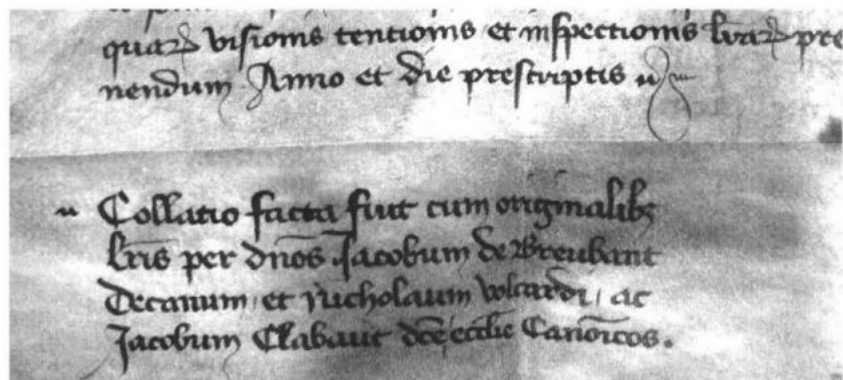 quarum visionis tentionis et inspectionis lrarum pre
nendum Anno et die prescriptis
Collatio facta fuit cum originalibz
lris per dnos Jacobum de Breubant
Decanum et Nicholaum Volcardi ac
Jacobum Clabaut dce ecclie Canonicos.